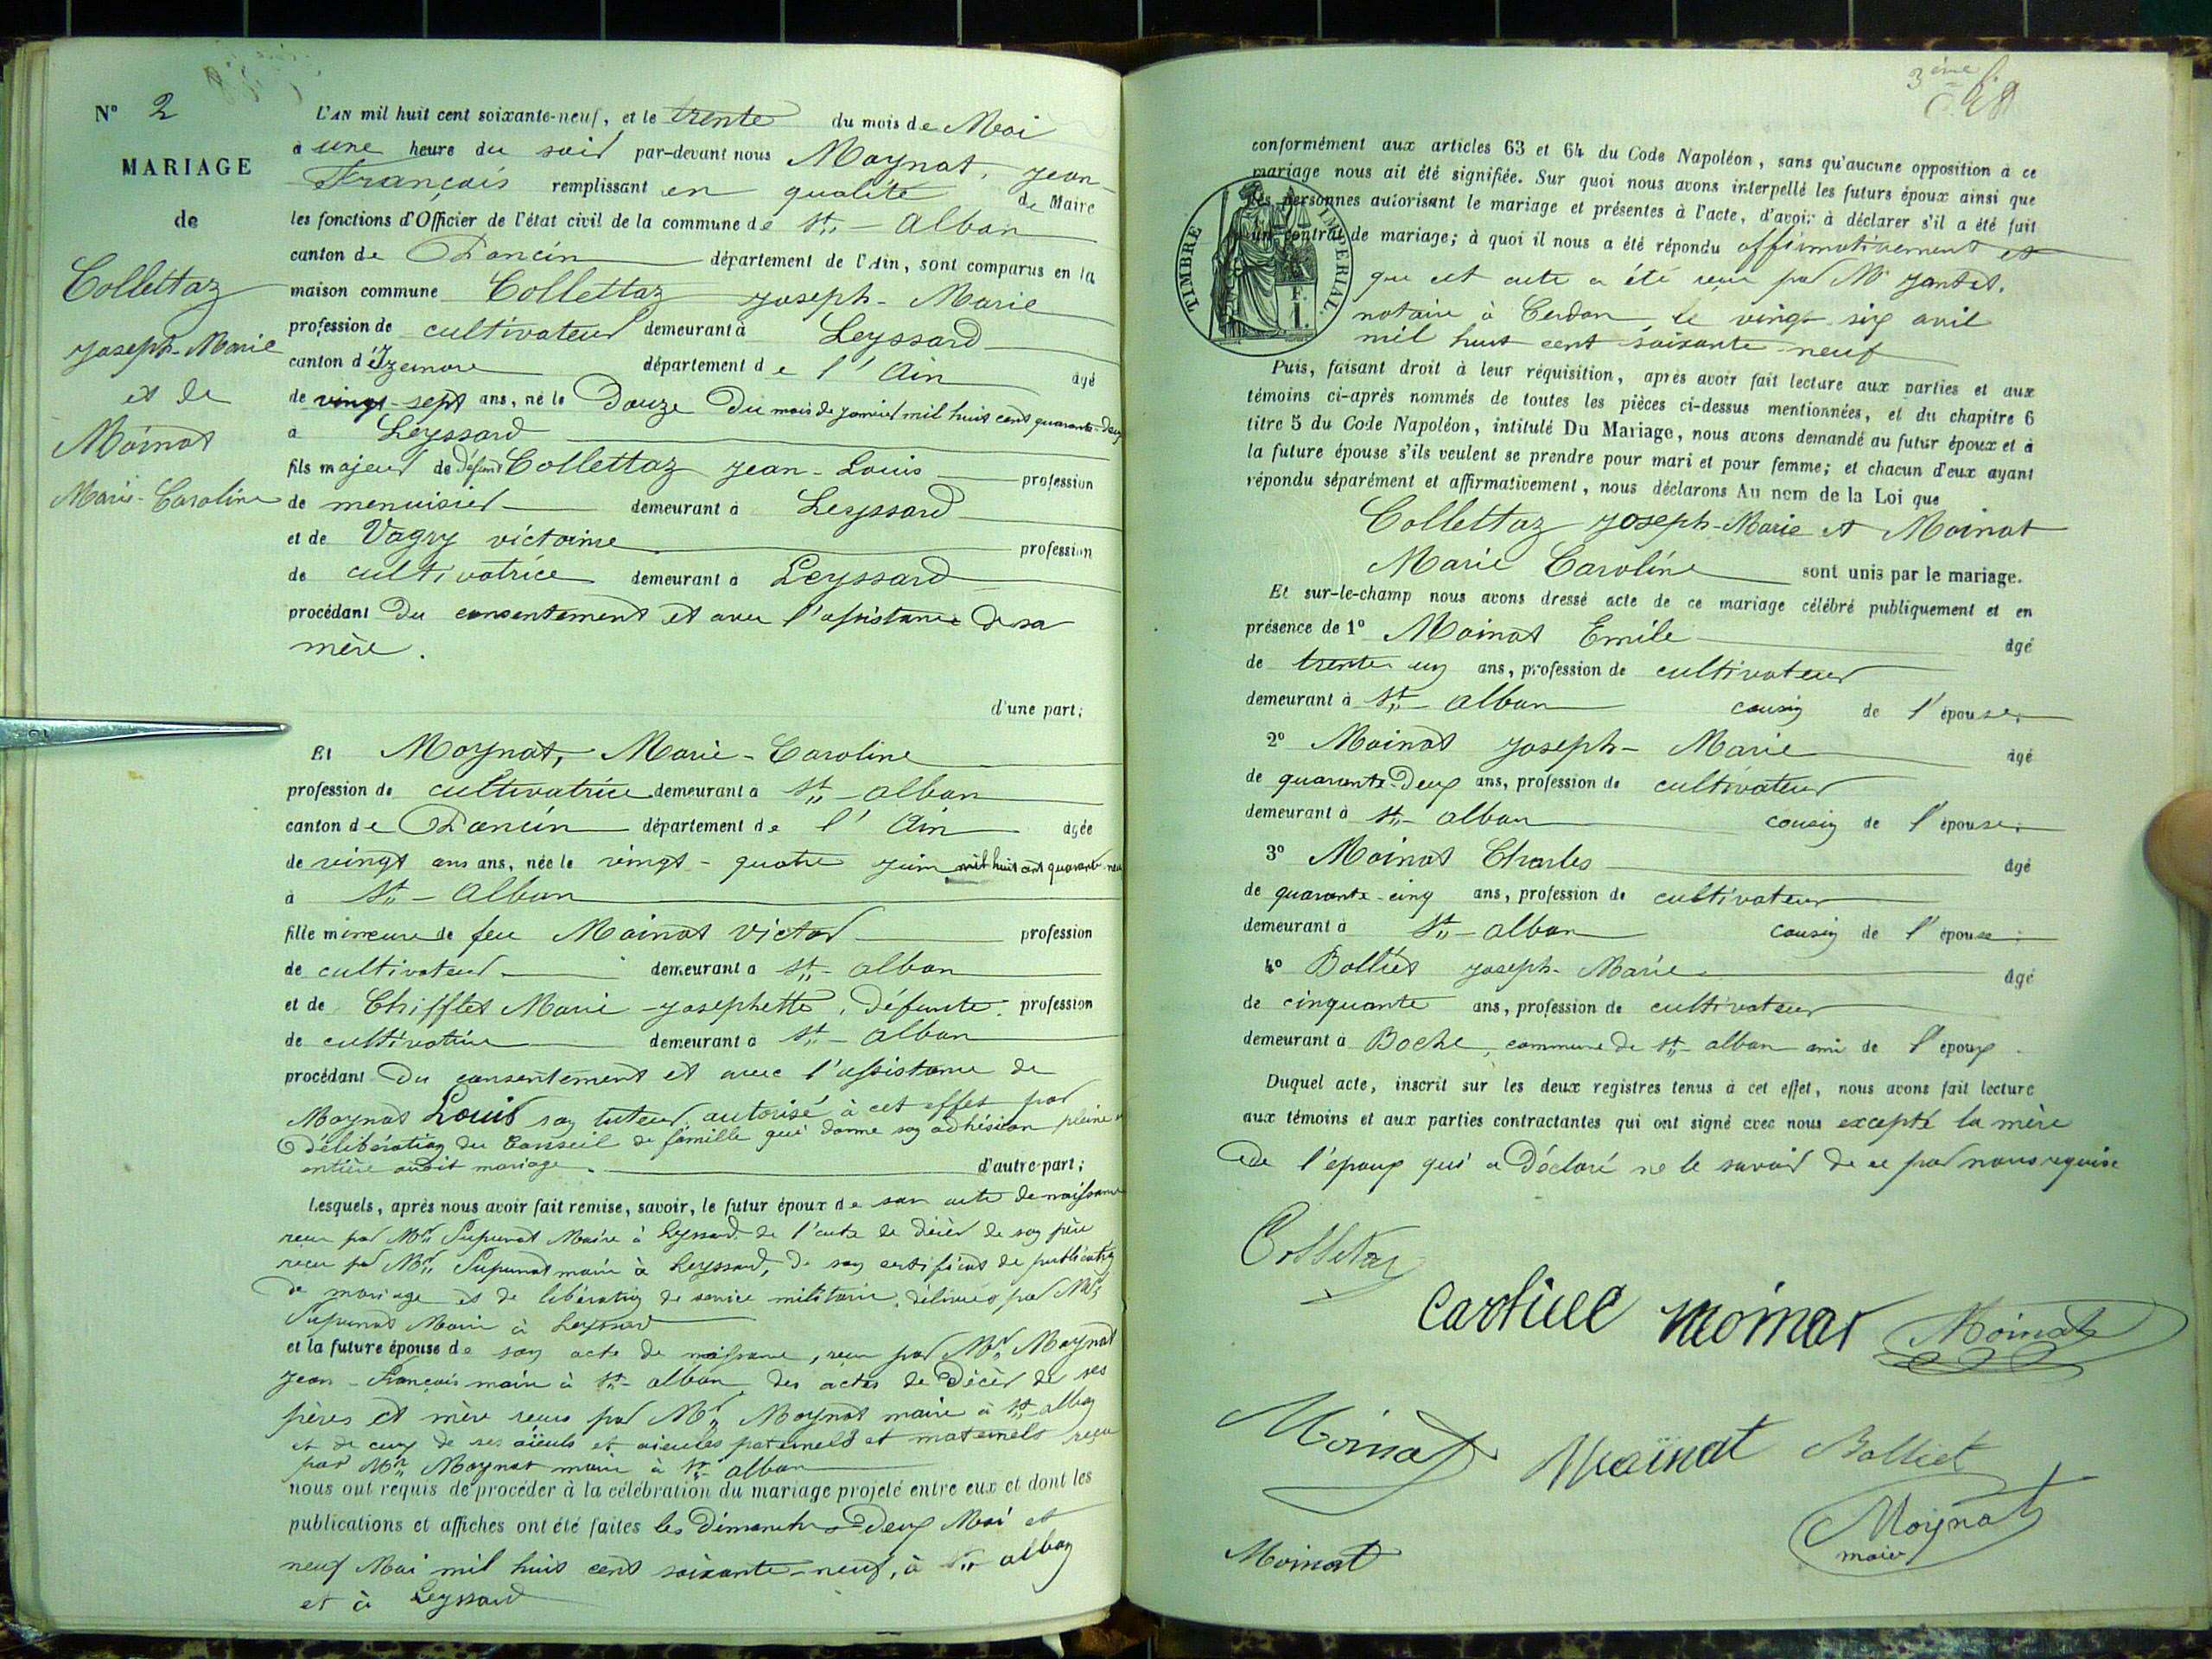 N° 2
MARIAGE
de
Collettaz
Joseph-Marie
et de
Moinat
Marie-Caroline
L'AN mil huit cent soixante-neuf, et le trente du mois de Mai
à une heure du soir par-devant nous Moynat, Jean-
François remplissant en qualité de Maire
les fonctions d'Officier de l'état civil de la commune de St-Alban
canton de Poncin département de l'Ain, sont comparus en la
maison commune Collettaz Joseph-Marie
profession de cultivateur demeurant à Leyssard
canton d'Izernore département de l'Ain âgé
de vingt-sept ans, né le Douze du mois de janvier mil huit cent quarante-deux
à Leyssard
fils majeur de Défunt Collettaz Jean-Louis profession
de menuisier demeurant à Leyssard
et de Vagry victorine profession
de cultivatrice demeurant à Leyssard
procédant Du consentement et avec l'assistance de sa
mère.
d'une part;
Et Moynat, Marie-Caroline
profession de cultivatrice demeurant à St-alban
canton de Poncin département de l'Ain âgée
de vingt ans ans, née le vingt-quatre juin mil huit cent quarante-neuf
à St-Alban
fille mineure de feu Moinat Victor profession
de cultivateur demeurant à St-alban
et de Chifflet Marie-Josephette, Défunte, profession
de cultivatrice demeurant à St-Alban
procédant Du consentement et avec l'assistance de
Moynat Louis son tuteur, autorisé à cet effet par
Délibération du Conseil de famille qui donne son adhésion pleine et
entière audit mariage. d'autre part;
Lesquels, après nous avoir fait remise, savoir, le futur époux de son acte de naissance
reçu par Mr Maire à Leyssard de l'acte de décès de son père
reçu par Mr maire à Leyssard, de son certificat de publication
de mariage et de libération de service militaire, délivrés par Mr
Maire à Leyssard
et la future épouse de son acte de naissance, reçu par Mr Moynat
Jean-François maire à St-alban, des actes de Décès de ses
pères et mère reçus par Mr Moynat maire à St-alban
et de ceux de ses aïeuls et aïeules paternels et maternels reçus
par Mr Moynat maire à St-alban
nous ont requis de procéder à la célébration du mariage projeté entre eux et dont les
publications et affiches ont été faites les Dimanches Deux Mai et
neuf Mai mil huit cent soixante-neuf, à St-alban
et à Leyssard
3ème
conformément aux articles 63 et 64 du Code Napoléon, sans qu'aucune opposition à ce
mariage nous ait été signifiée. Sur quoi nous avons interpellé les futurs époux ainsi que
les personnes autorisant le mariage et présentes à l'acte, d'avoir à déclarer s'il a été fait
un contrat de mariage; à quoi il nous a été répondu affirmativement et
que cet acte a été reçu par Mr Jantet,
notaire à Cerdon le vingt-six avril
mil huit cent soixante-neuf
TIMBRE IMPERIAL.
1 F.
Puis, faisant droit à leur réquisition, après avoir fait lecture aux parties et aux
témoins ci-après nommés de toutes les pièces ci-dessus mentionnées, et du chapitre 6
titre 5 du Code Napoléon, intitulé Du Mariage, nous avons demandé au futur époux et à
la future épouse s'ils veulent se prendre pour mari et pour femme; et chacun d'eux ayant
répondu séparément et affirmativement, nous déclarons Au nom de la Loi que
Collettaz Joseph-Marie et Moinat
Marie Caroline sont unis par le mariage.
Et sur-le-champ nous avons dressé acte de ce mariage célébré publiquement et en
présence de 1° Moinat Emile âgé
de trente un ans, profession de cultivateur
demeurant à St-alban cousin de l'épouse;
2° Moinat Joseph-Marie âgé
de quarante-Deux ans, profession de cultivateur
demeurant à St-alban cousin de l'épouse;
3° Moinat Charles âgé
de quarante-cinq ans, profession de cultivateur
demeurant à St-alban cousin de l'épouse;
4° Bolliet Joseph-Marie âgé
de cinquante ans, profession de cultivateur
demeurant à Boche, commune de St-alban ami de l'époux.
Duquel acte, inscrit sur les deux registres tenus à cet effet, nous avons fait lecture
aux témoins et aux parties contractantes qui ont signé avec nous excepté la mère
de l'époux qui a Déclaré ne le savoir de ce par nous requise
Collettaz
Caroline Moinat Moinat
Moinat Moinat Bolliet
Moinat
Moynat
maire